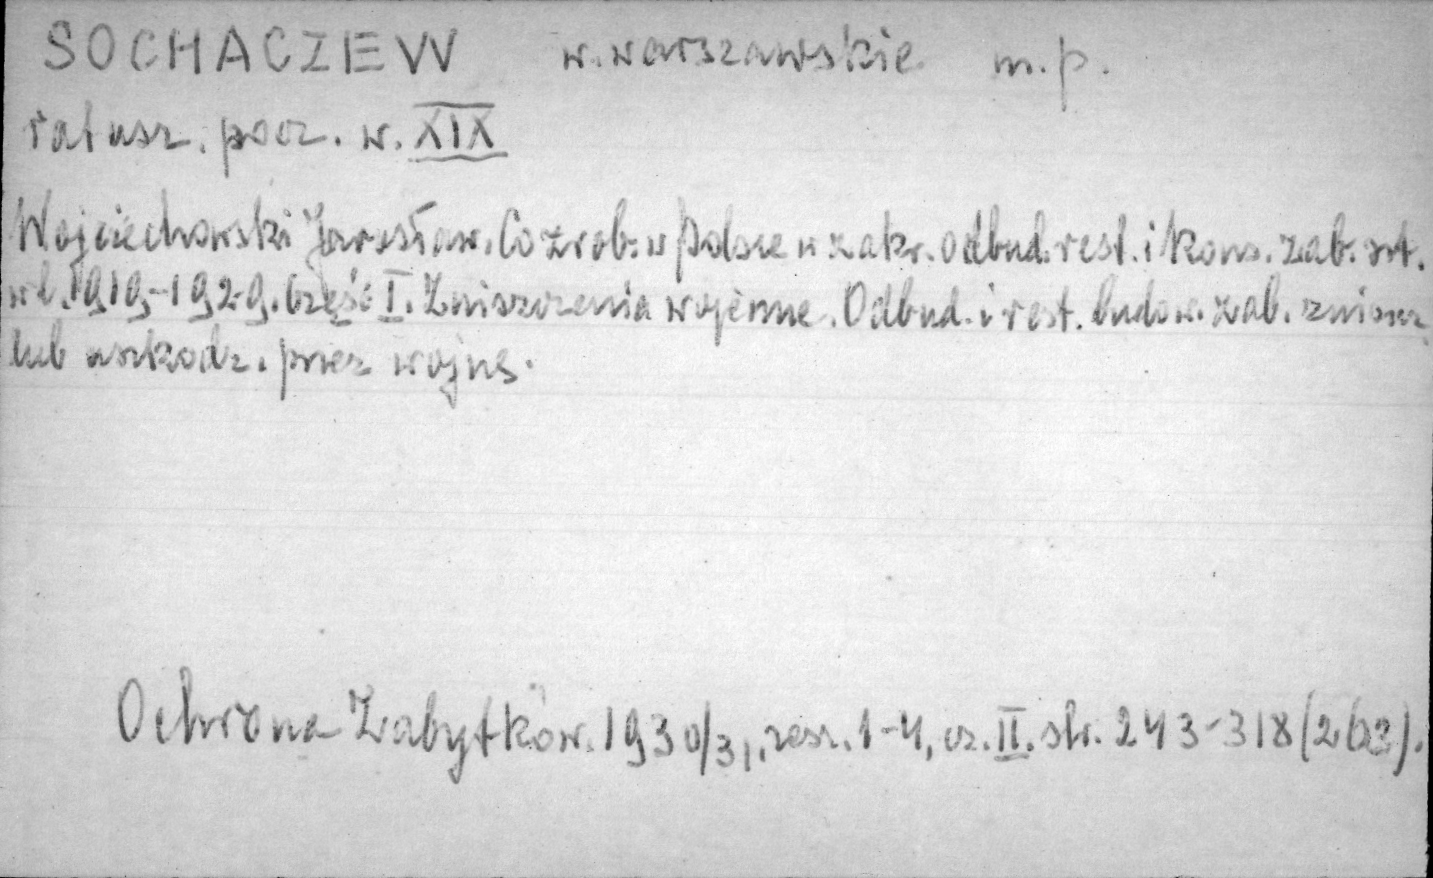 SOCHACZEW w. warszawskie m.p.
ratusz. pocz. w. XIX
Wojciechowski Jarosław. Co zrob. w Polsce w zakr. odbud. rest. i kons. zab. szt.
w l. 1919-1929. Część I. Zniszczenia wojenne. Odbud. i rest. budow. zab. zniszcz.
lub uszkodz. przez wojnę.
Ochrona Zabytków. 1930/31, zesz. 1-4, cz. II. str. 243-318 (263).